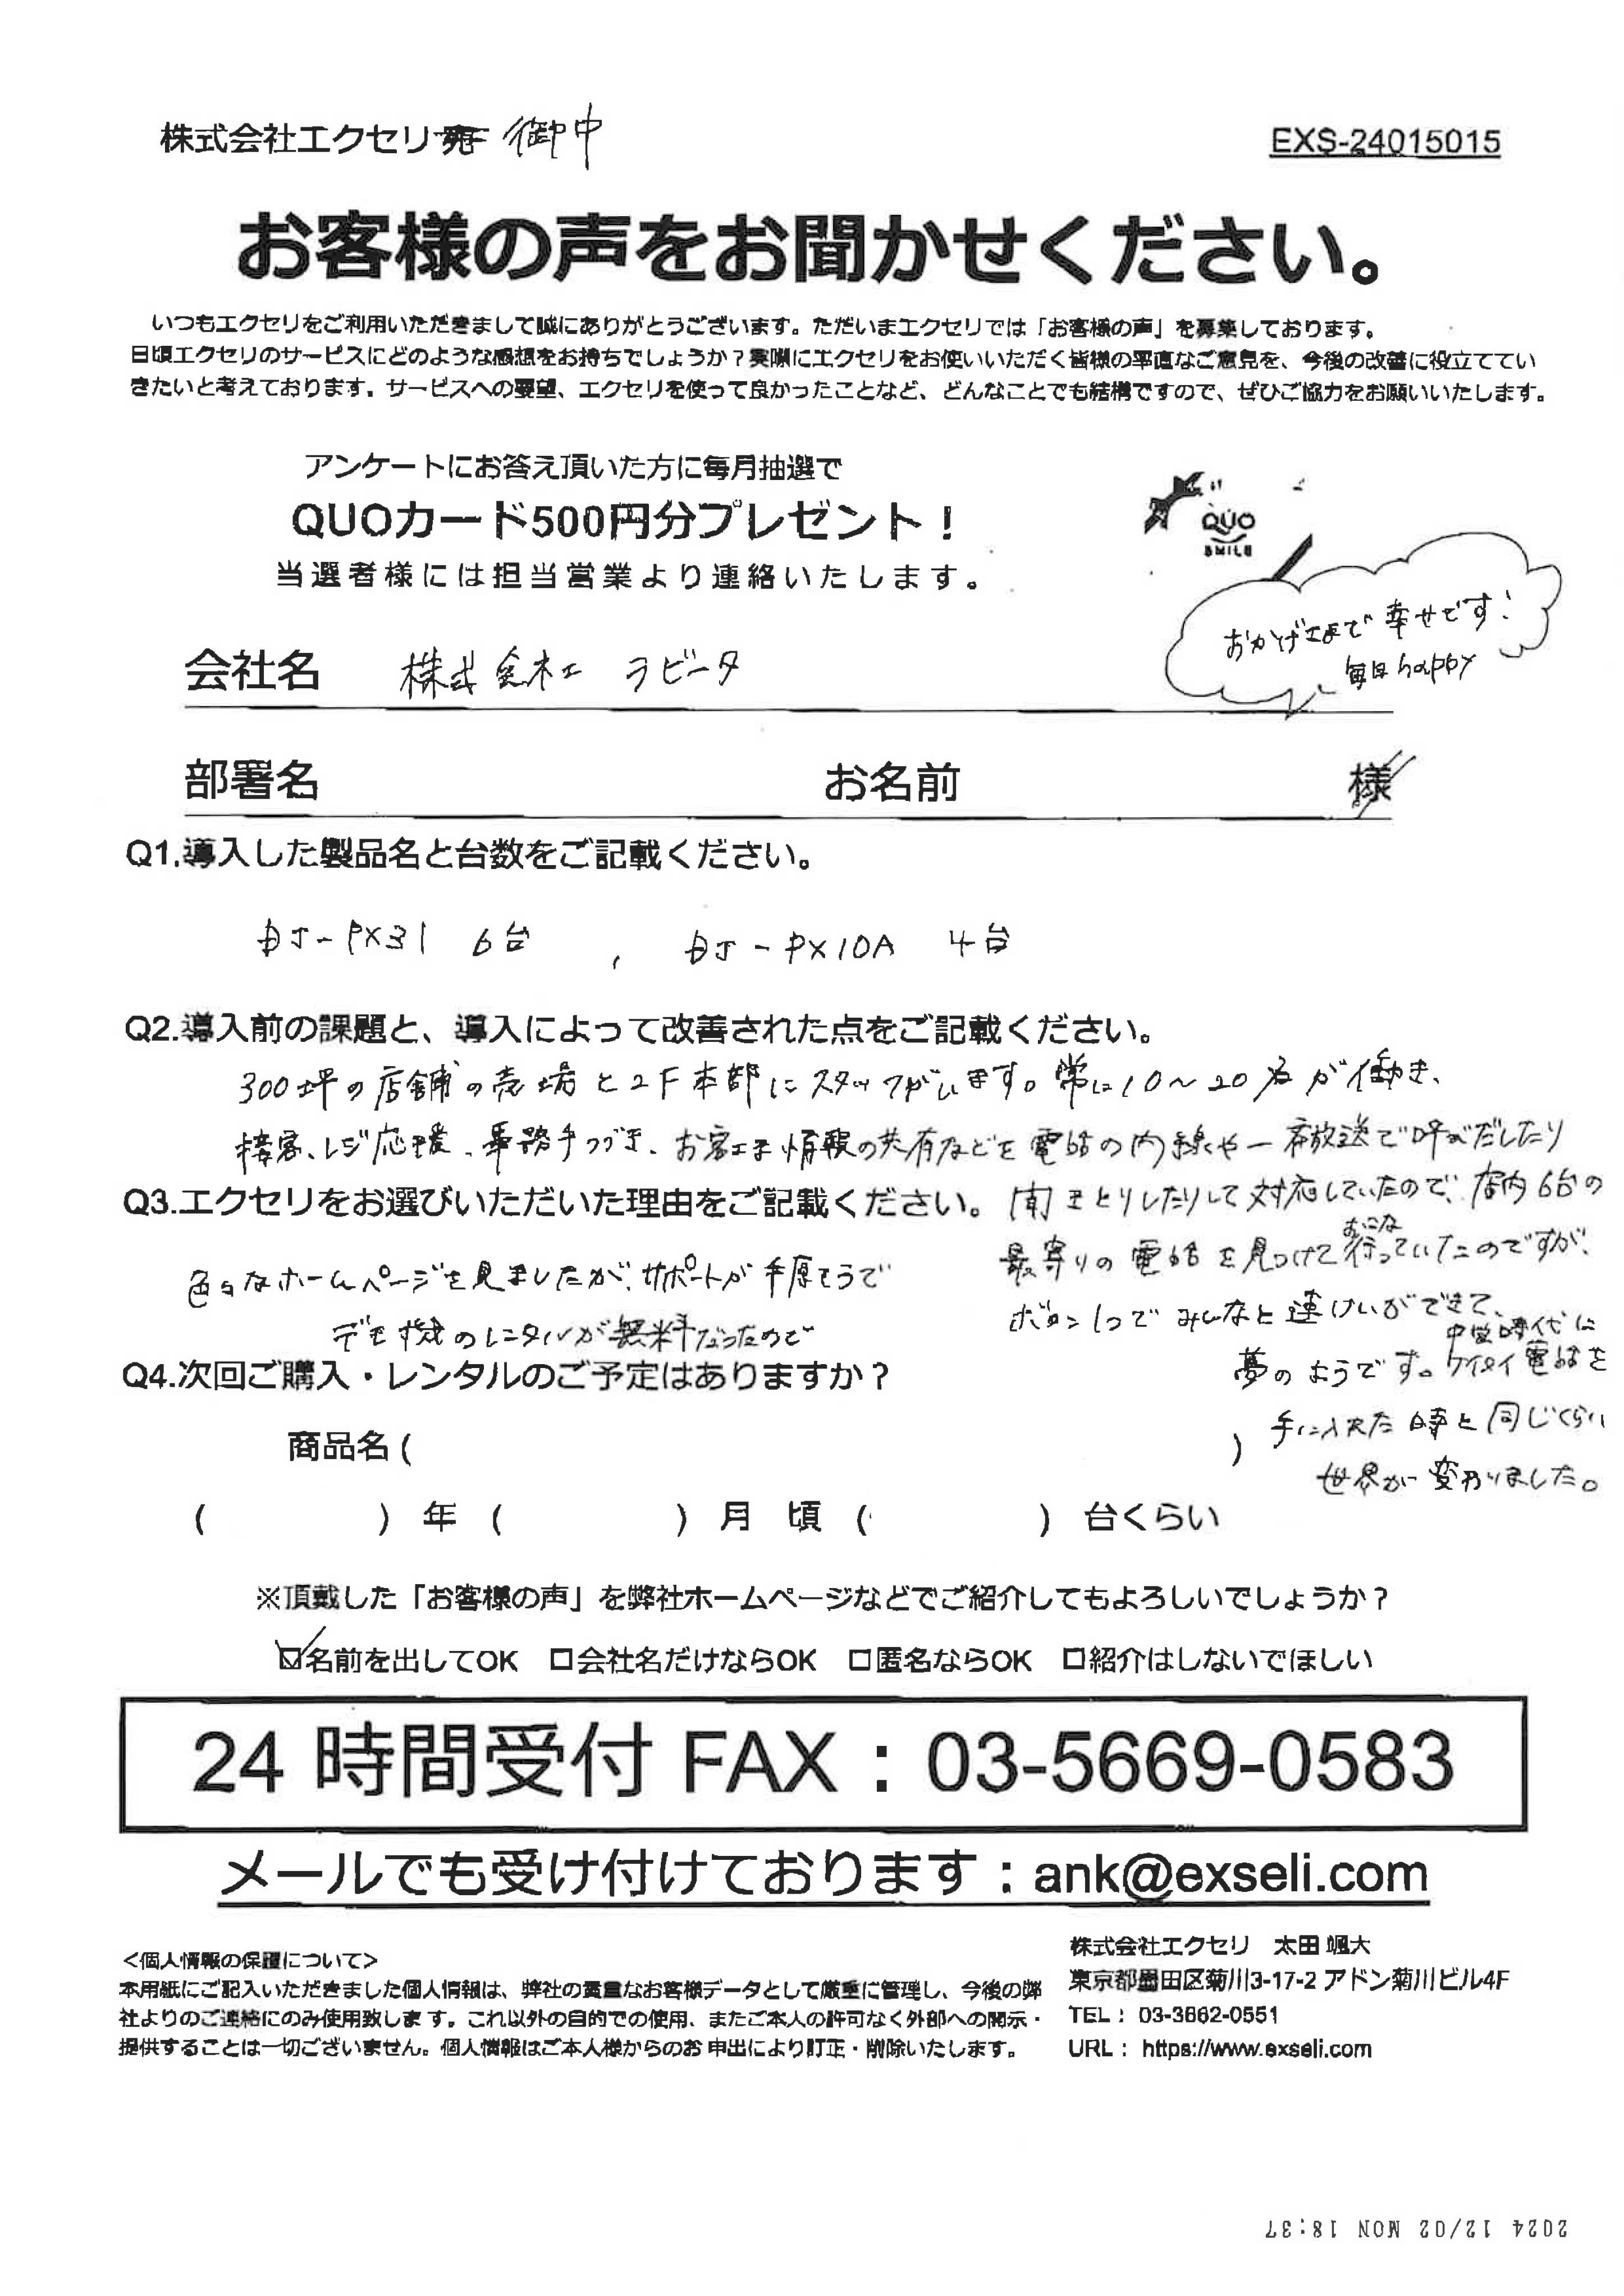 株式会社エクセリ 宛 御中
EXS-24015015
お客様の声をお聞かせください。
いつもエクセリをご利用いただきまして誠にありがとうございます。ただいまエクセリでは「お客様の声」を募集しております。
日頃エクセリのサービスにどのような感想をお持ちでしょうか？実際にエクセリをお使いいただく皆様の率直なご意見を、今後の改善に役立ててい
きたいと考えております。サービスへの要望、エクセリを使って良かったことなど、どんなことでも結構ですので、ぜひご協力をお願いいたします。
アンケートにお答え頂いた方に毎月抽選で
QUOカード500円分プレゼント！
当選者様には担当営業より連絡いたします。
QUO
SMILE
おかげさまで幸せです！
毎日happy
会社名 株式会社 ラビータ
部署名 お名前 様
Q1.導入した製品名と台数をご記載ください。
DJ-PX31 6台 , DJ-PX10A 4台
Q2.導入前の課題と、導入によって改善された点をご記載ください。
300坪の店舗の売場と2F本部にスタッフがいます。常に10～20名が働き、
接客、レジ応援、事務手つづき、お客さま情報の共有などを電話の内線や一斉放送で呼びだしたり
聞きとりしたりして対応していたので、店内6台の
最寄りの電話を見つけて行っていたのですが、
おこな
ボタン1つでみんなと連けいができて、
夢のようです。中学時代にケイタイ電話を
手に入れた時と同じくらい
世界が変わりました。
Q3.エクセリをお選びいただいた理由をご記載ください。
色々なホームページを見ましたが、サポートが手厚そうで
デモ機のレンタルが無料だったので
Q4.次回ご購入・レンタルのご予定はありますか？
商品名( )
( ) 年 ( ) 月 頃 ( ) 台くらい
※頂戴した「お客様の声」を弊社ホームページなどでご紹介してもよろしいでしょうか？
☑名前を出してOK □会社名だけならOK □匿名ならOK □紹介はしないでほしい
24 時間受付 FAX：03-5669-0583
メールでも受け付けております：ank@exseli.com
＜個人情報の保護について＞
本用紙にご記入いただきました個人情報は、弊社の貴重なお客様データとして厳重に管理し、今後の弊
社よりのご連絡にのみ使用致します。これ以外の目的での使用、またご本人の許可なく外部への開示・
提供することは一切ございません。個人情報はご本人様からのお申出により訂正・削除いたします。
株式会社エクセリ 太田 颯大
東京都墨田区菊川3-17-2 アドン菊川ビル4F
TEL： 03-3662-0551
URL： https://www.exseli.com
2024 12/02 MON 18:37